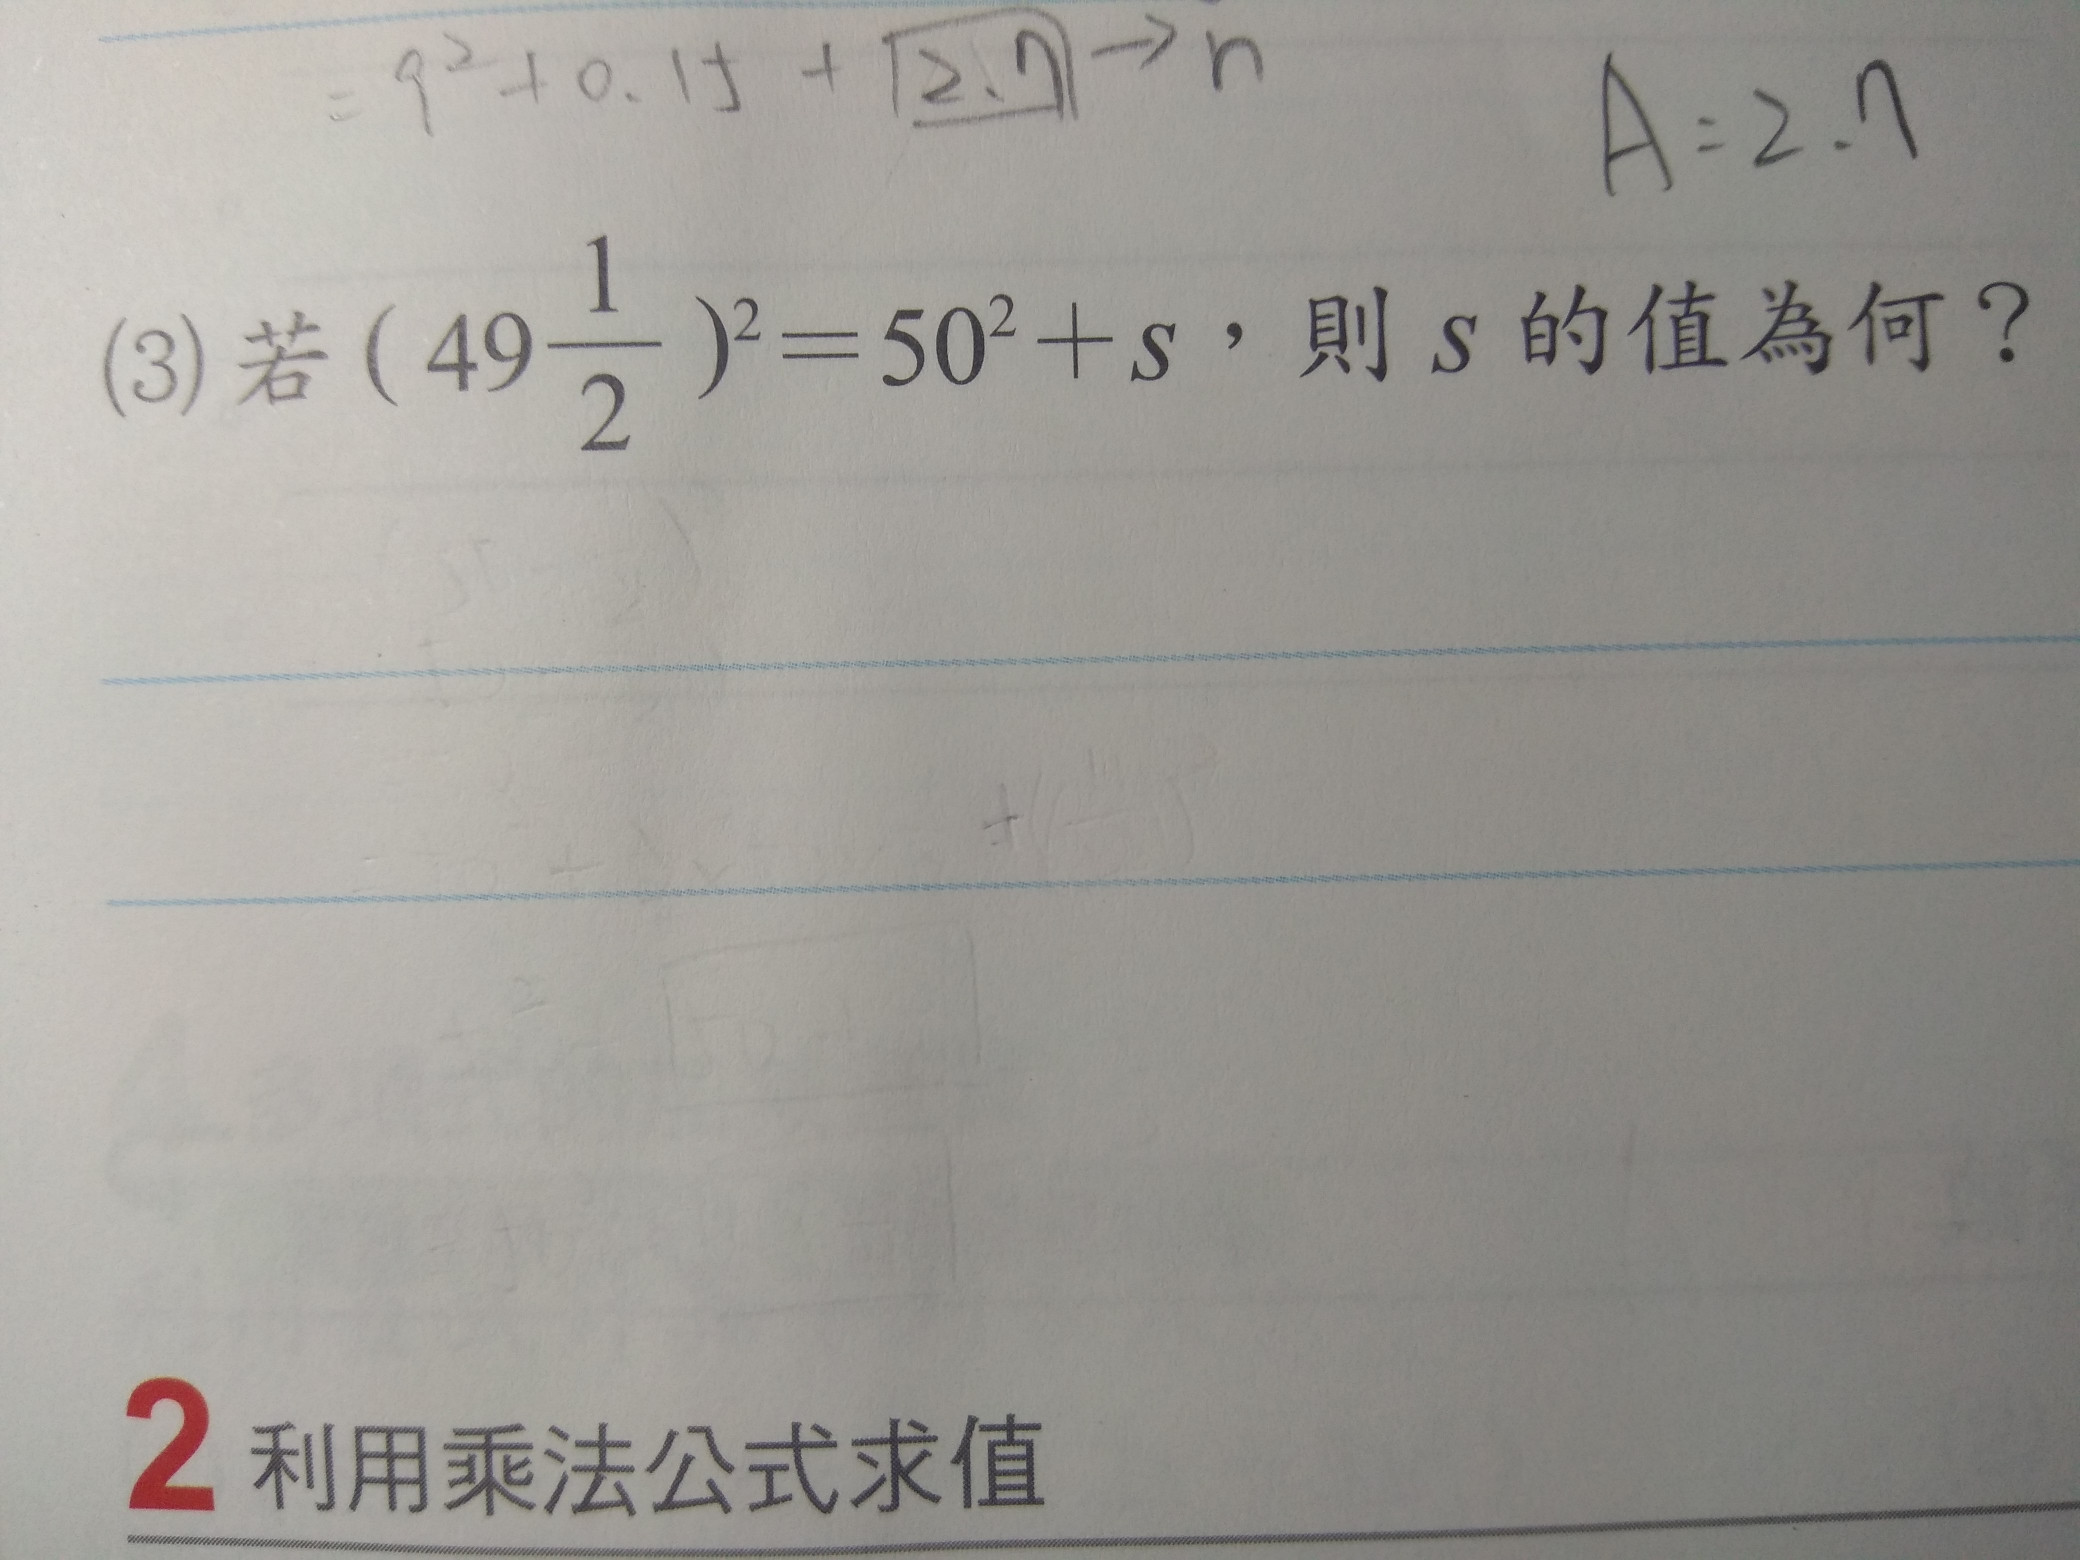 = 9² + 0.15 + 2.7 → n
A = 2.7
(3) 若 ( 49 1/2 )² = 50² + s，則 s 的值為何？
2 利用乘法公式求值